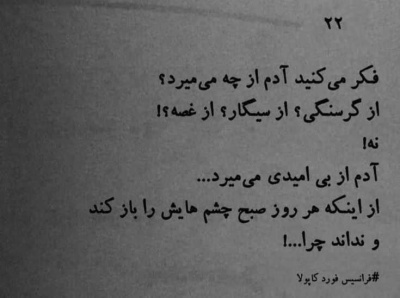 ۲۲
فکر می‌کنید آدم از چه می‌میرد؟
از گرسنگی؟ از سیگار؟ از غصه؟!
نه!
آدم از بی امیدی می‌میرد...
از اینکه هر روز صبح چشم هایش را باز کند
و نداند چرا...!
#فرانسیس فورد کاپولا